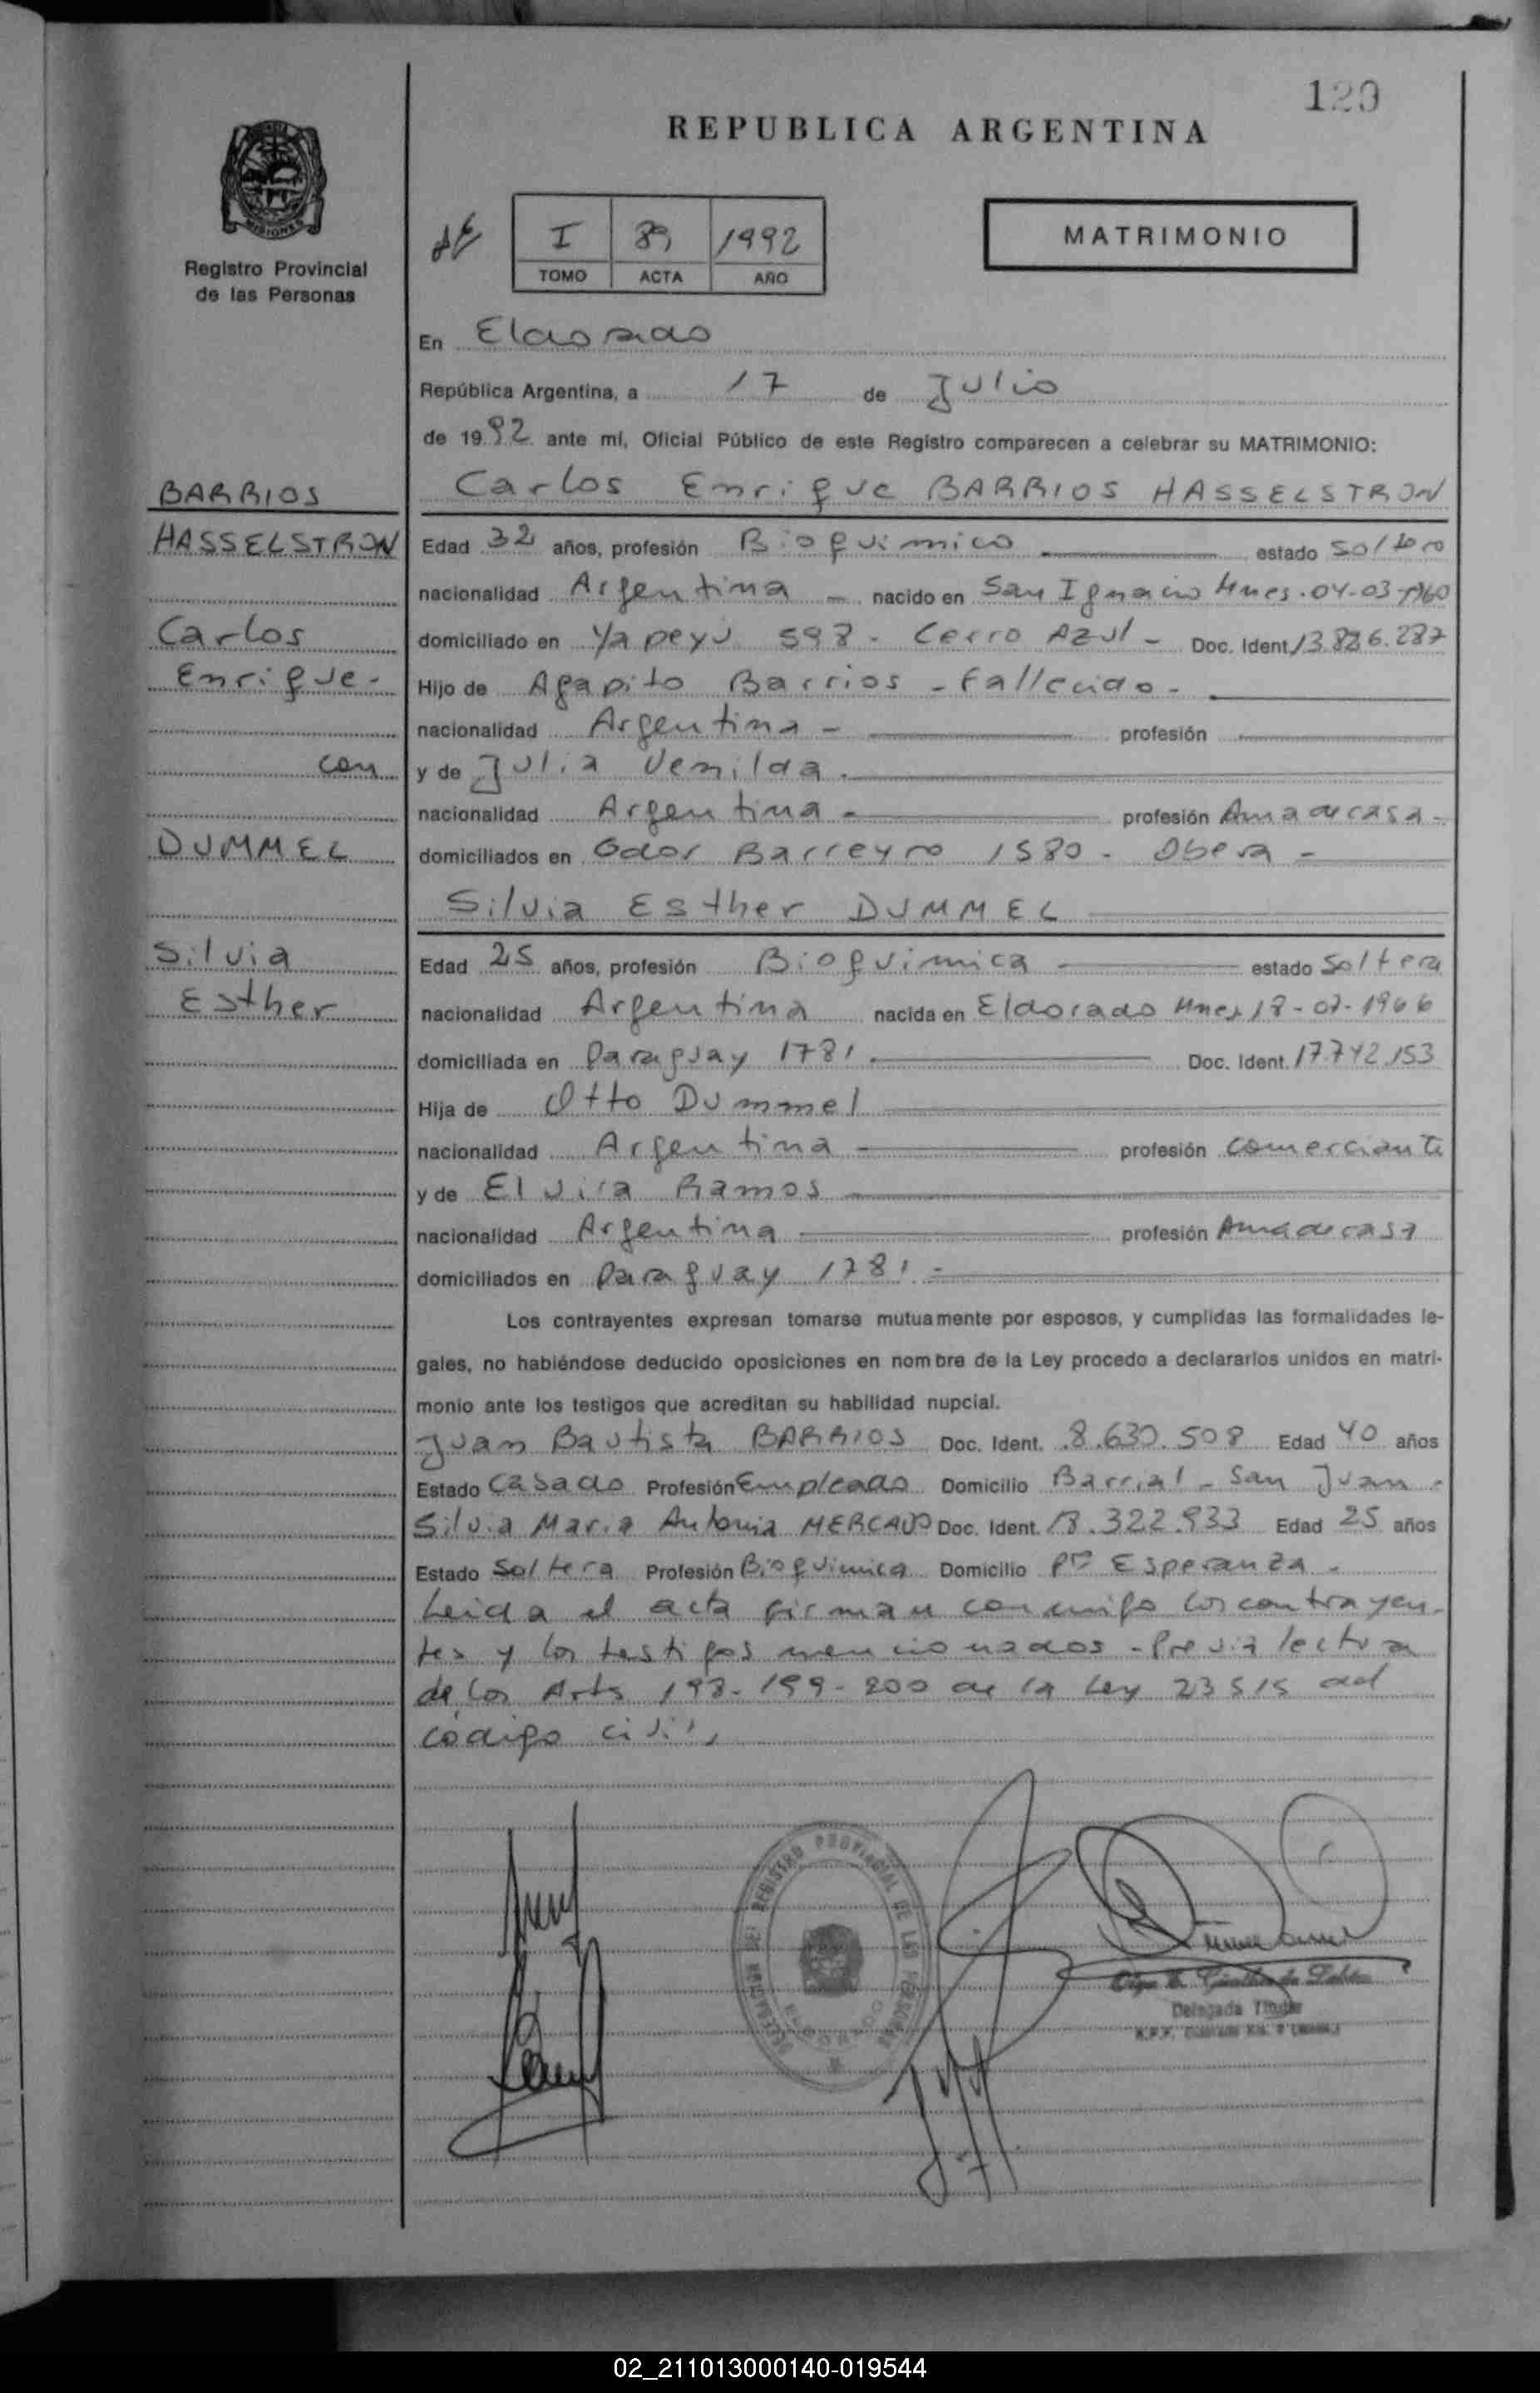 129
REPUBLICA ARGENTINA
MISIONES
Registro Provincial
de las Personas
I 89 1992
TOMO ACTA AÑO
MATRIMONIO
En Eldorado
República Argentina, a 17 de Julio
de 1992 ante mí, Oficial Público de este Registro comparecen a celebrar su MATRIMONIO:
BARRIOS
HASSELSTRON
Carlos
Enrique-
con
DUMMEL
Silvia
Esther
Carlos Enrique BARRIOS HASSELSTRON
Edad 32 años, profesión Bioquimico estado Soltero
nacionalidad Argentina - nacido en San Ignacio Mnes. 04-03-1960
domiciliado en Yapeyú 598 - Cerro Azul - Doc. Ident 13.826.287
Hijo de Agapito Barrios - Fallecido -
nacionalidad Argentina - profesión
y de Julia Venilda.
nacionalidad Argentina - profesión Ama de casa -
domiciliados en Barreyro 1580 - Obera -
Silvia Esther DUMMEL
Edad 25 años, profesión Bioquimica estado Soltera
nacionalidad Argentina nacida en Eldorado Mnes 18-07-1966
domiciliada en Paraguay 1781. Doc. Ident. 17.742.153
Hija de Otto Dummel
nacionalidad Argentina profesión comerciante
y de Elvira Ramos
nacionalidad Argentina profesión Ama de casa
domiciliados en Paraguay 1781 -
Los contrayentes expresan tomarse mutuamente por esposos, y cumplidas las formalidades le-
gales, no habiéndose deducido oposiciones en nombre de la Ley procedo a declararlos unidos en matri-
monio ante los testigos que acreditan su habilidad nupcial.
Juan Bautista BARRIOS Doc. Ident. 8.630.508 Edad 40 años
Estado Casado Profesión Empleado Domicilio Barrial - San Juan -
Silvia Maria Antonia MERCADO Doc. Ident. 18.322.933 Edad 25 años
Estado Soltera Profesión Bioquimica Domicilio Pto Esperanza -
Leida el acta firman conmigo los contrayen-
tes y los testigos mencionados - Previa lectura
de los Arts 198-199-200 de la Ley 23515 del
código civil,
DELEGACION DEL REGISTRO PROVINCIAL DE LAS PERSONAS
ELDORADO
Delegada Titular
02_211013000140-019544